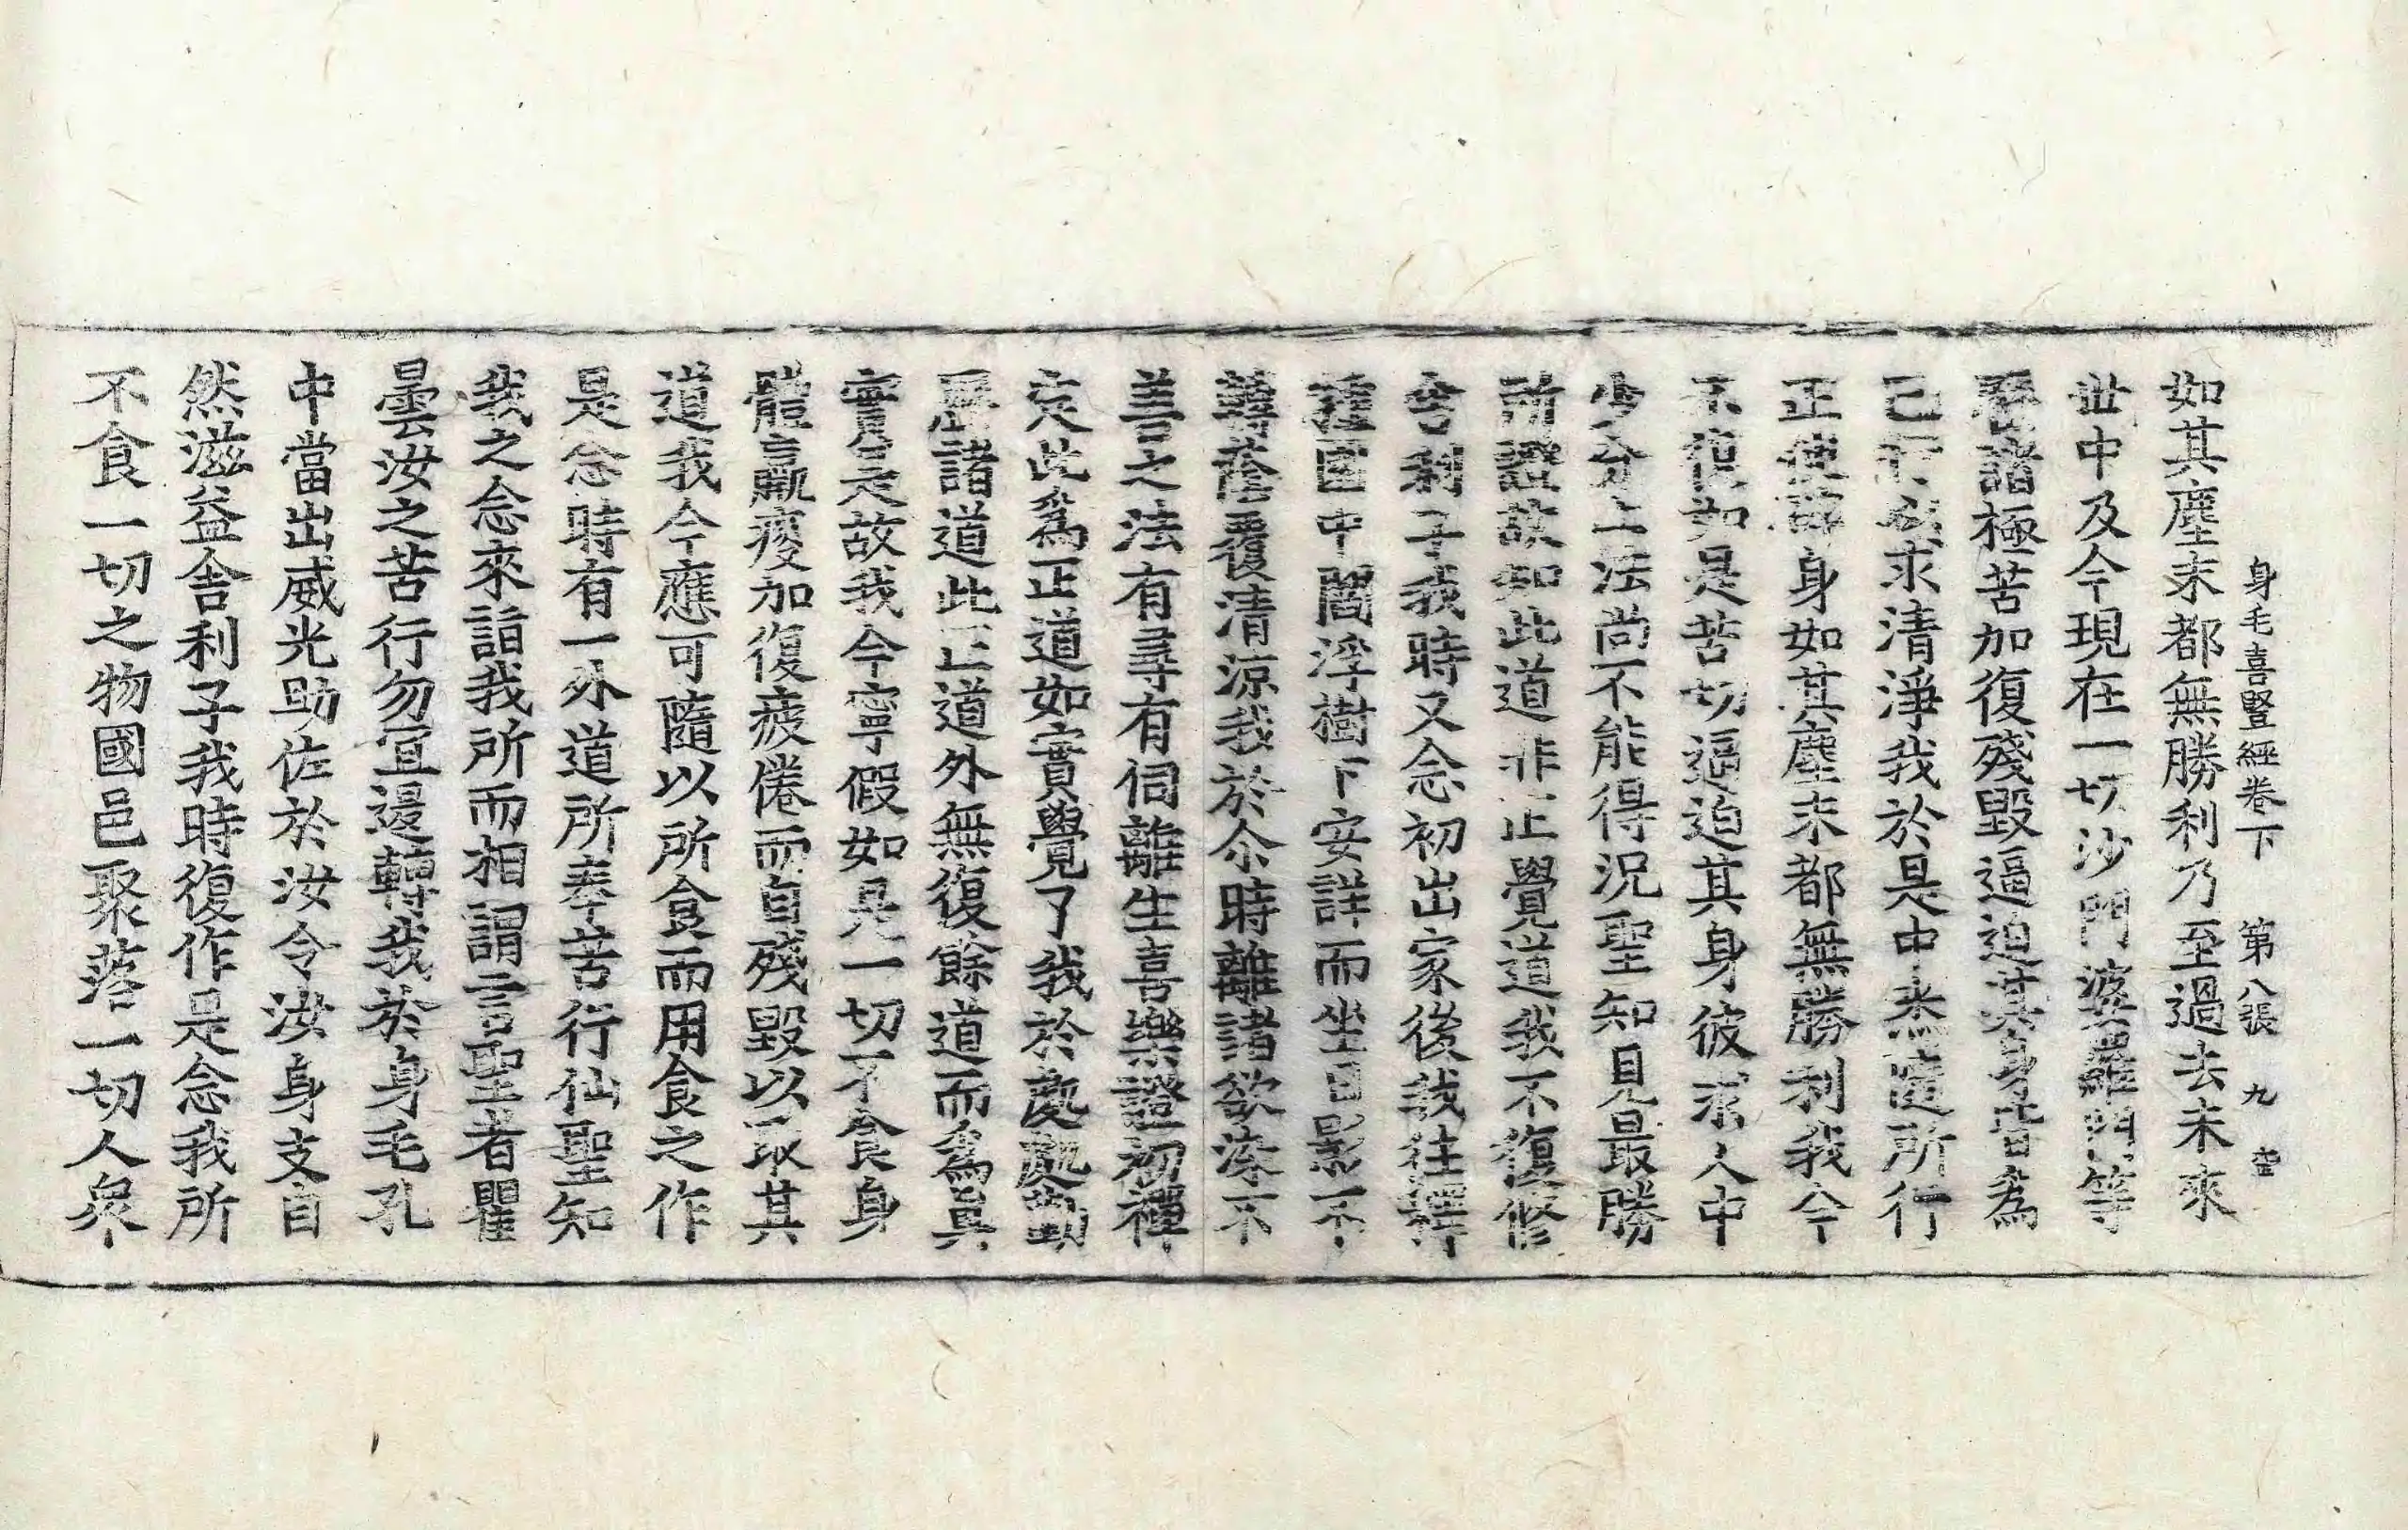 身毛喜豎經卷下 第八張 九
如其塵末都無勝利乃至過去未來
世中及今現在一切沙門婆羅門等
歷諸極苦加復殘毀逼迫其身皆為
己行求清淨我於是中悉遣所行
正使身如其塵末都無勝利我今
不復如是苦切逼迫其身彼求人中
少分上法尚不能得況聖知見最勝
所證故知此道非正覺道我不復修
舍利子我時又念初出家後我往釋
種園中閻浮樹下安詳而坐日影不
轉蔭覆清涼我於尒時離諸欲染不
善之法有尋有伺離生喜樂證初禪
定此為正道如實覺了我於處處勤
歷諸道此正道外無復餘道而為眞
實是故我今寧假如是一切不食身
體羸瘦加復疲倦而自殘毀以取其
道我今應可隨以所食而用食之作
是念時有一外道所奉苦行仙聖知
我之念來詣我所而相謂言聖者瞿
曇汝之苦行勿宜退轉我於身毛孔
中當出威光助佐於汝令汝身支自
然滋益舍利子我時復作是念我所
不食一切之物國邑聚落一切人衆